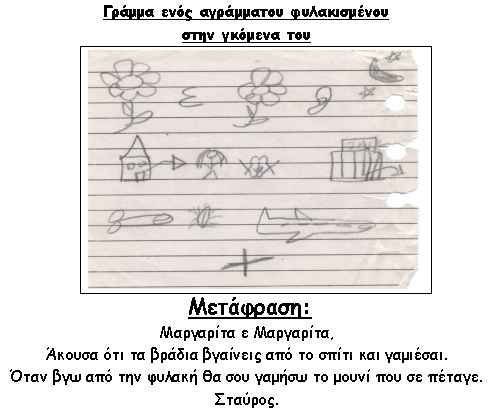 Γράμμα ενός αγράμματου φυλακισμένου
στην γκόμενα του
Μετάφραση:
Μαργαρίτα ε Μαργαρίτα,
Άκουσα ότι τα βράδια βγαίνεις από το σπίτι και γαμιέσαι.
Όταν βγω από την φυλακή θα σου γαμήσω το μουνί που σε πέταγε.
Σταύρος.